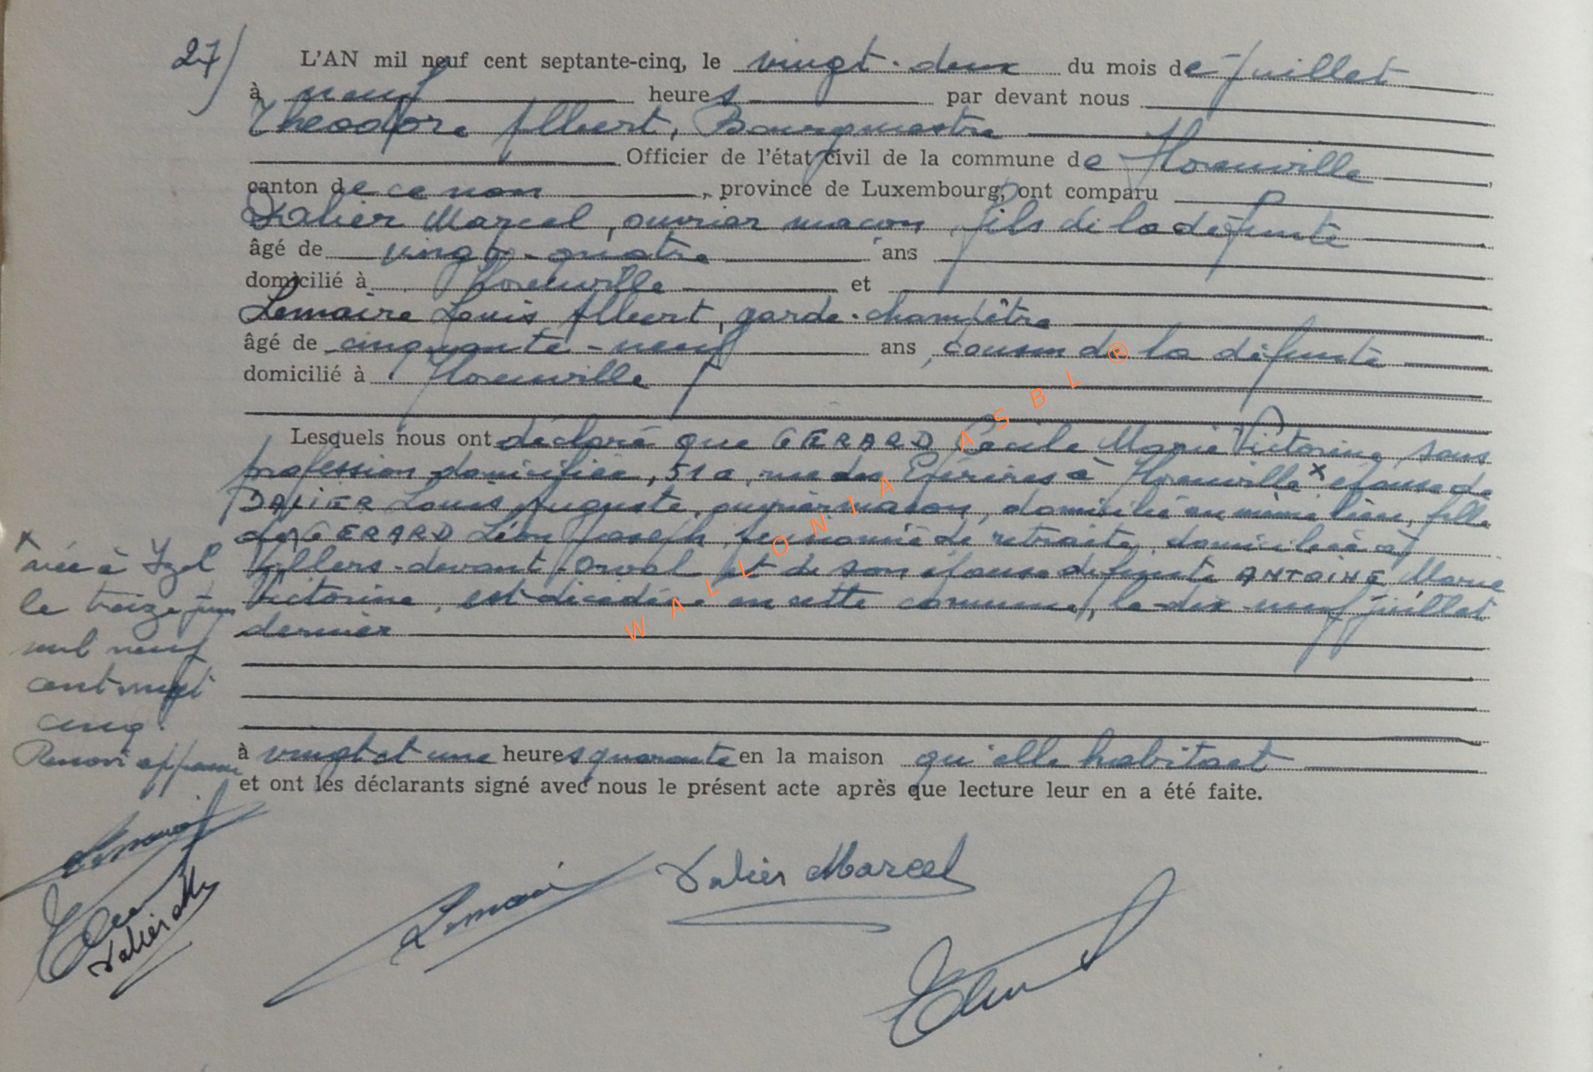 27/ L'AN mil neuf cent septante-cinq, le vingt-deux du mois de juillet
à neuf heures par devant nous
Théodore Albert, Bourgmestre
Officier de l'état civil de la commune de Florenville
canton de ce nom, province de Luxembourg, ont comparu
Dalier Marcel, ouvrier maçon, fils de la défunte
âgé de vingt-quatre ans
domicilié à Florenville et
Lemaire Louis Albert, garde-champêtre
âgé de cinquante-neuf ans, cousin de la défunte
domicilié à Florenville
Lesquels nous ont déclaré que GERARD Cécile Marie Victorine, sans
profession, domiciliée, 51a, rue des à Florenville x épouse de
DALIER Louis Auguste, ouvrier maçon, domicilié au même lieu, fille
de GERARD Léon Joseph, pensionné de retraite, domicilié à
Villers-devant-Orval et de son épouse défunte ANTOINE Marie
Victorine, est décédée en cette commune, le dix-neuf juillet
dernier
à vingt et une heures quarante en la maison qu'elle habitait
et ont les déclarants signé avec nous le présent acte après que lecture leur en a été faite.
x
née à Izel
le treize juin
mil neuf
cent vingt
cinq.
Renvoi approuvé
Lemaire
Dalier M
Lemaire
Dalier Marcel
WALLONIA ASBL ®